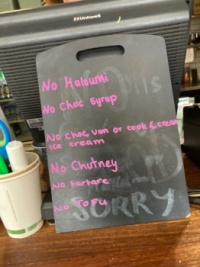 No Haloumi
No Choc Syrup
No choc, van or cook & cream
ice cream
No Chutney
No Tartare
No Tofu
SORRY